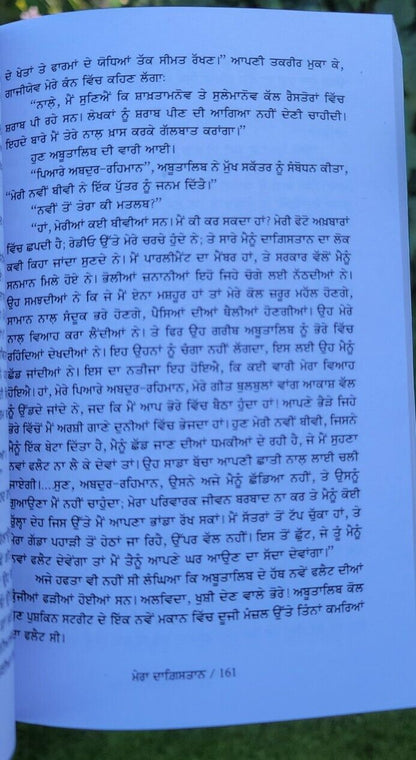 ਦੇ ਖੇਤਾਂ ਤੇ ਫਾਰਮਾਂ ਦੇ ਯੋਧਿਆਂ ਤੱਕ ਸੀਮਤ ਰੱਖਣ।” ਆਪਣੀ ਤਕਰੀਰ ਮੁਕਾ ਕੇ,
ਗਾਜੀਯੇਵ ਮੇਰੇ ਕੰਨ ਵਿੱਚ ਕਹਿਣ ਲੱਗਾ:
“ਨਾਲੇ, ਮੈਂ ਸੁਣਿਐਂ ਕਿ ਸ਼ਾਖ਼ਤਾਮਨੋਵ ਤੇ ਸੁਲੇਮਾਨੋਵ ਕੱਲ ਰੈਸਤੋਰਾਂ ਵਿੱਚ
ਸ਼ਰਾਬ ਪੀ ਰਹੇ ਸਨ। ਲੇਖਕਾਂ ਨੂੰ ਸ਼ਰਾਬ ਪੀਣ ਦੀ ਆਗਿਆ ਨਹੀਂ ਦੇਣੀ ਚਾਹੀਦੀ।
ਇਹਦੇ ਬਾਰੇ ਮੈਂ ਤੇਰੇ ਨਾਲ ਖ਼ਾਸ ਕਰਕੇ ਗੱਲਬਾਤ ਕਰਾਂਗਾ।”
ਹੁਣ ਅਬੂਤਾਲਿਬ ਦੀ ਵਾਰੀ ਆਈ।
“ਪਿਆਰੇ ਅਬਦੁਰ-ਰਹਿਮਾਨ”, ਅਬੂਤਾਲਿਬ ਨੇ ਮੁੱਖ ਸਕੱਤਰ ਨੂੰ ਸੰਬੋਧਨ ਕੀਤਾ,
“ਮੇਰੀ ਨਵੀਂ ਬੀਵੀ ਨੇ ਇੱਕ ਪੁੱਤਰ ਨੂੰ ਜਨਮ ਦਿੱਤੈ।”
“ਨਵੀਂ ਤੋਂ ਤੇਰਾ ਕੀ ਮਤਲਬ?”
“ਹਾਂ, ਮੇਰੀਆਂ ਕਈ ਬੀਵੀਆਂ ਸਨ। ਮੈਂ ਕੀ ਕਰ ਸਕਦਾ ਹਾਂ? ਮੇਰੀ ਫੋਟੋ ਅਖ਼ਬਾਰਾਂ
ਵਿੱਚ ਛਪਦੀ ਹੈ; ਰੇਡੀਓ ਉੱਤੇ ਮੇਰੇ ਚਰਚੇ ਹੁੰਦੇ ਨੇ; ਤੇ ਸਾਰੇ ਮੈਨੂੰ ਦਾਗਿਸਤਾਨ ਦਾ ਲੋਕ
ਕਵੀ ਕਿਹਾ ਜਾਂਦਾ ਸੁਣਦੇ ਨੇ। ਮੈਂ ਪਾਰਲੀਮੈਂਟ ਦਾ ਮੈਂਬਰ ਹਾਂ, ਤੇ ਸਰਕਾਰ ਵੱਲੋਂ ਮੈਨੂੰ
ਸਨਮਾਨ ਮਿਲੇ ਹੋਏ ਨੇ। ਭੋਲੀਆਂ ਜ਼ਨਾਨੀਆਂ ਇਹੋ ਜਿਹੇ ਚੋਗੇ ਲਈ ਨੱਠਦੀਆਂ ਨੇ।
ਉਹ ਸਮਝਦੀਆਂ ਨੇ ਕਿ ਜੇ ਮੈਂ ਏਨਾ ਮਸ਼ਹੂਰ ਹਾਂ ਤਾਂ ਮੇਰੇ ਕੋਲ ਜ਼ਰੂਰ ਮਹੱਲ ਹੋਣਗੇ,
ਸਾਮਾਨ ਨਾਲ ਸੰਦੂਕ ਭਰੇ ਹੋਣਗੇ, ਪੈਸਿਆਂ ਦੀਆਂ ਥੈਲੀਆਂ ਹੋਣਗੀਆਂ। ਉਹ ਮੇਰੇ
ਨਾਲ ਵਿਆਹ ਕਰਾ ਲੈਂਦੀਆਂ ਨੇ। ਤੇ ਫਿਰ ਉਹ ਗਰੀਬ ਅਬੂਤਾਲਿਬ ਨੂੰ ਭੋਰੇ ਵਿੱਚ
ਰਹਿੰਦਿਆਂ ਦੇਖਦੀਆਂ ਨੇ। ਇਹ ਉਹਨਾਂ ਨੂੰ ਚੰਗਾ ਨਹੀਂ ਲੱਗਦਾ, ਇਸ ਲਈ ਉਹ ਮੈਨੂੰ
ਛੱਡ ਜਾਂਦੀਆਂ ਨੇ। ਇਸ ਦਾ ਨਤੀਜਾ ਇਹ ਹੋਇਐ, ਕਿ ਕਈ ਵਾਰੀ ਮੇਰਾ ਵਿਆਹ
ਹੋਇਐ। ਹਾਂ, ਮੇਰੇ ਪਿਆਰੇ ਅਬਦੁਰ-ਰਹਿਮਾਨ, ਮੇਰੇ ਗੀਤ ਬੁਲਬੁਲਾਂ ਵਾਂਗ ਆਕਾਸ਼ ਵੱਲ
ਨੂੰ ਉੱਡਦੇ ਜਾਂਦੇ ਨੇ, ਜਦ ਕਿ ਮੈਂ ਆਪ ਭੋਰੇ ਵਿੱਚ ਬੈਠਾ ਹੁੰਦਾ ਹਾਂ! ਆਪਣੇ ਭੈੜੇ ਜਿਹੇ
ਭੋਰੇ ਵਿੱਚੋਂ ਮੈਂ ਅਰਸ਼ੀ ਗਾਣੇ ਦੁਨੀਆਂ ਵਿੱਚ ਭੇਜਦਾ ਹਾਂ। ਹੁਣ ਮੇਰੀ ਨਵੀਂ ਬੀਵੀ, ਜਿਸਨੇ
ਮੈਨੂੰ ਇਕ ਬੇਟਾ ਦਿੱਤਾ ਹੈ, ਮੈਨੂੰ ਛੱਡ ਜਾਣ ਦੀਆਂ ਧਮਕੀਆਂ ਦੇ ਰਹੀ ਹੈ, ਜੇ ਮੈਂ ਸੁਹਣਾ
ਨਵਾਂ ਫਲੈਟ ਨਾ ਲੈ ਕੇ ਦੇਵਾਂ ਤਾਂ। ਉਹ ਸਾਡਾ ਬੱਚਾ ਆਪਣੀ ਛਾਤੀ ਨਾਲ ਲਾਈ ਚਲੀ
ਜਾਏਗੀ।...ਸੁਣ, ਅਬਦੁਰ-ਰਹਿਮਾਨ, ਉਸਨੇ ਅਜੇ ਮੈਨੂੰ ਛੱਡਿਆ ਨਹੀਂ, ਤੇ ਉਸਨੂੰ
ਗੁਆਉਣਾ ਮੈਂ ਨਹੀਂ ਚਾਹੁੰਦਾ; ਮੇਰਾ ਪਰਿਵਾਰਕ ਜੀਵਨ ਬਰਬਾਦ ਨਾ ਕਰ ਤੇ ਮੈਨੂੰ ਕੋਈ
ਚੁੱਲ੍ਹਾ ਦੇਹ ਜਿਸ ਉੱਤੇ ਮੈਂ ਆਪਣਾ ਭਾਂਡਾ ਰੱਖ ਸਕਾਂ। ਮੈਂ ਸੱਤਰਾਂ ਤੋਂ ਟੱਪ ਚੁੱਕਾ ਹਾਂ, ਤੇ
ਮੇਰਾ ਗੱਡਾ ਪਹਾੜੀ ਤੋਂ ਹੇਠਾਂ ਜਾ ਰਿਹੈ, ਉੱਪਰ ਵੱਲ ਨਹੀਂ। ਇਸ ਤੋਂ ਛੁੱਟ, ਜੇ ਤੂੰ ਮੈਨੂੰ
ਨਵਾਂ ਫਲੈਟ ਦੇਵੇਂਗਾ ਤਾਂ ਮੈਂ ਤੈਨੂੰ ਆਪਣੇ ਘਰ ਆਉਣ ਦਾ ਸੱਦਾ ਦੇਵਾਂਗਾ।”
ਅਜੇ ਹਫਤਾ ਵੀ ਨਹੀਂ ਸੀ ਲੰਘਿਆ ਕਿ ਅਬੂਤਾਲਿਬ ਦੇ ਹੱਥ ਨਵੇਂ ਫਲੈਟ ਦੀਆਂ
ਕੁੰਜੀਆਂ ਫੜੀਆਂ ਹੋਈਆਂ ਸਨ। ਅਲਵਿਦਾ, ਖੁਸ਼ੀ ਦੇਣ ਵਾਲੇ ਭੋਰੇ! ਅਬੂਤਾਲਿਬ ਕੋਲ
ਪੁਸ਼ਕਿਨ ਸਟਰੀਟ ਦੇ ਇਕ ਨਵੇਂ ਮਕਾਨ ਵਿੱਚ ਦੂਜੀ ਮੰਜ਼ਲ ਉੱਤੇ ਤਿੰਨਾਂ ਕਮਰਿਆਂ
ਦਾ ਫਲੈਟ ਸੀ।
ਮੇਰਾ ਦਾਗਿਸਤਾਨ / 161